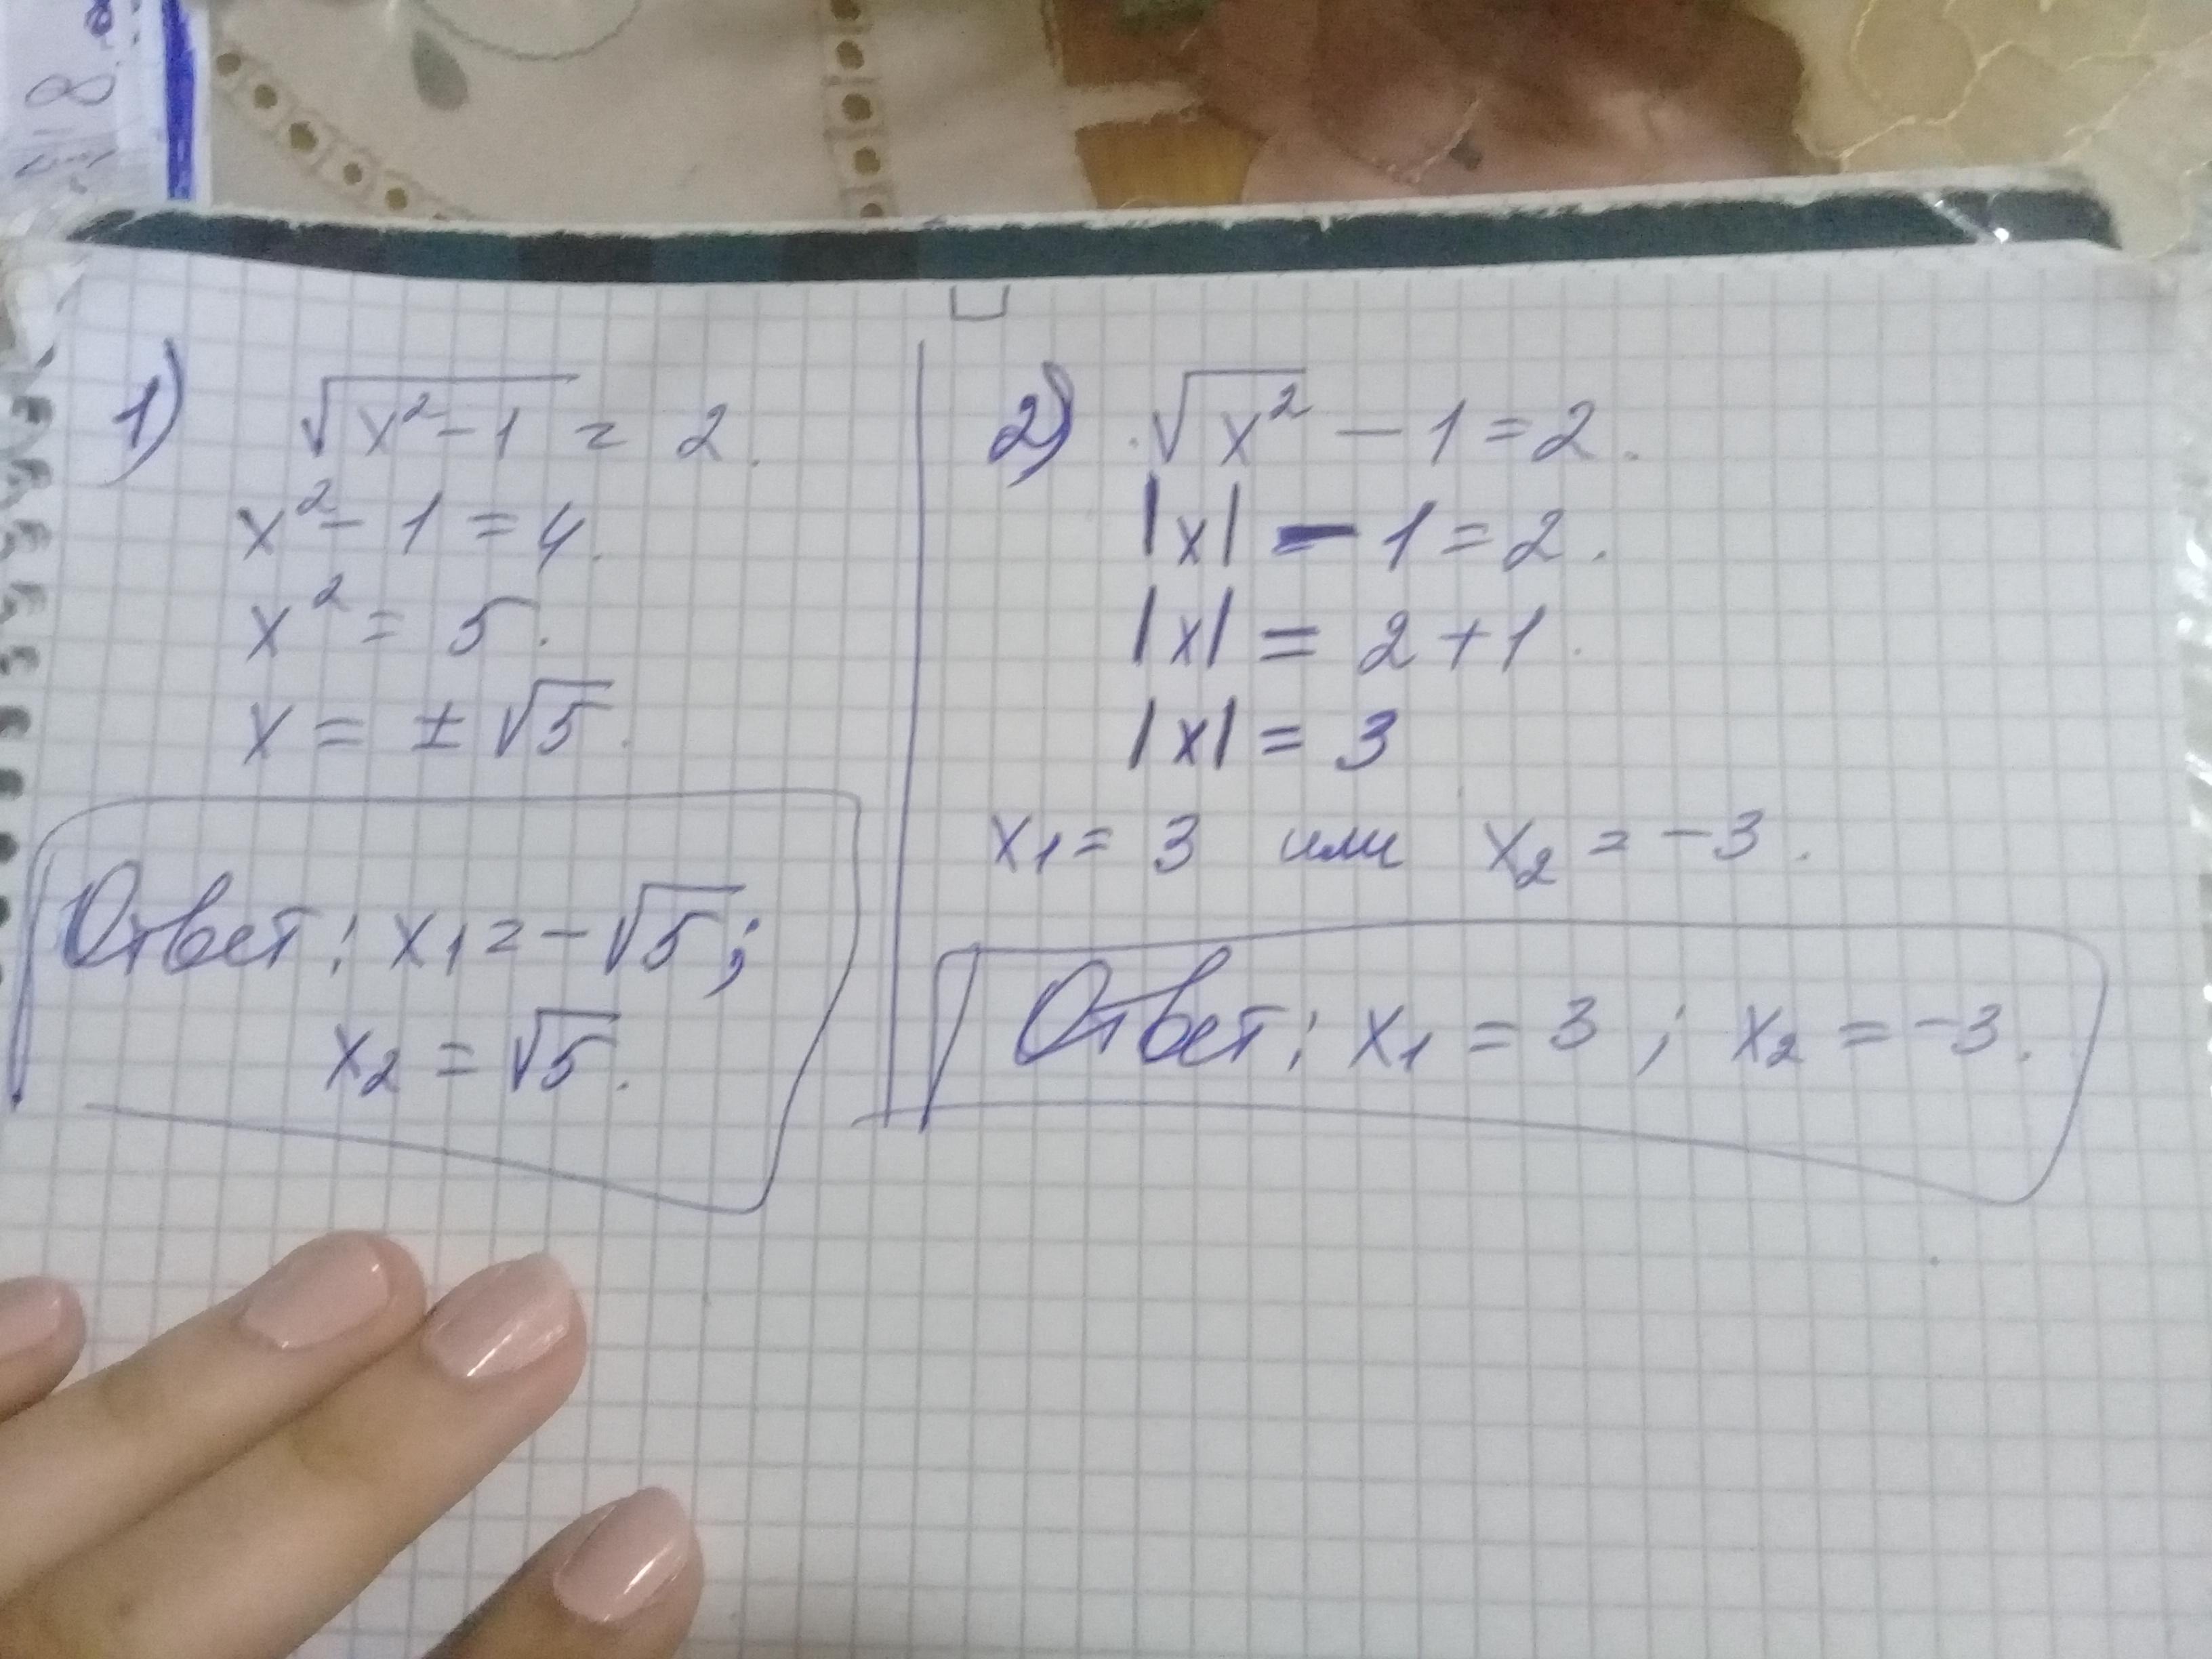 1) √(x²-1) = 2.
x² - 1 = 4.
x² = 5.
x = ± √5.
Ответ: x₁ = -√5;
x₂ = √5.
2) √x² - 1 = 2.
|x| - 1 = 2.
|x| = 2 + 1.
|x| = 3
x₁ = 3 или x₂ = -3.
Ответ: x₁ = 3; x₂ = -3.